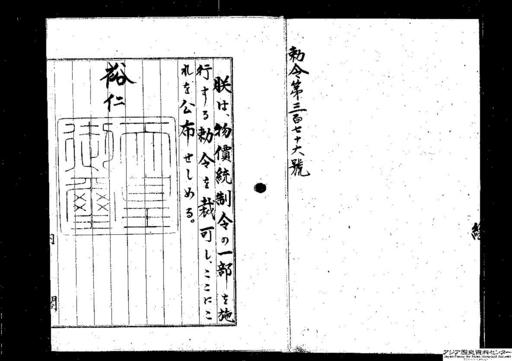 勅令第三百七十六號
朕は、物價統制令の一部を施
行する勅令を裁可し、ここにこ
れを公布せしめる。
裕仁
天皇
御璽
内
閣
アジア歴史資料センター